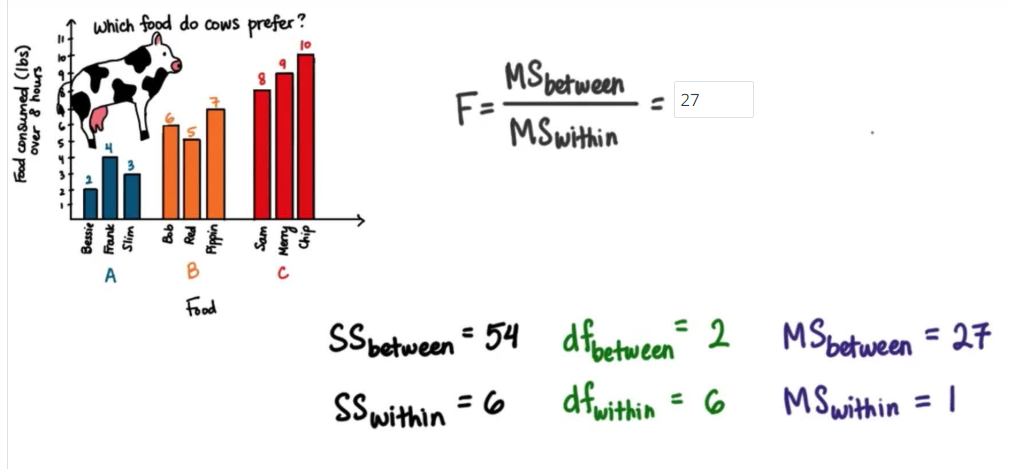 Which food do cows prefer?
Food consumed (lbs)
over 8 hours
11
10
9
8
6
5
4
3
2
1
2
4
3
6
5
7
8
9
10
Bessie
Frank
Slim
Bob
Red
Pippin
Sam
Merry
Chip
A
B
C
Food
F = MSbetween / MSwithin = 27
SSbetween = 54 dfbetween = 2 MSbetween = 27
SSwithin = 6 dfwithin = 6 MSwithin = 1